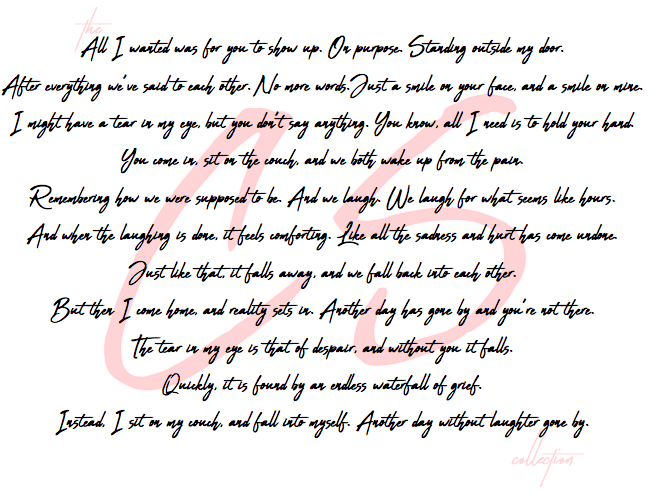 the
All I wanted was for you to show up. On purpose. Standing outside my door.
After everything we've said to each other. No more words. Just a smile on your face, and a smile on mine.
I might have a tear in my eye, but you don't say anything. You know, all I need is to hold your hand.
You come in, sit on the couch, and we both wake up from the pain.
Remembering how we were supposed to be. And we laugh. We laugh for what seems like hours.
And when the laughing is done, it feels comforting. Like all the sadness and hurt has come undone.
Just like that, it falls away, and we fall back into each other.
But then I come home, and reality sets in. Another day has gone by and you're not there.
The tear in my eye is that of despair, and without you it falls.
Quickly, it is found by an endless waterfall of grief.
Instead, I sit on my couch, and fall into myself. Another day without laughter gone by.
CS
collection